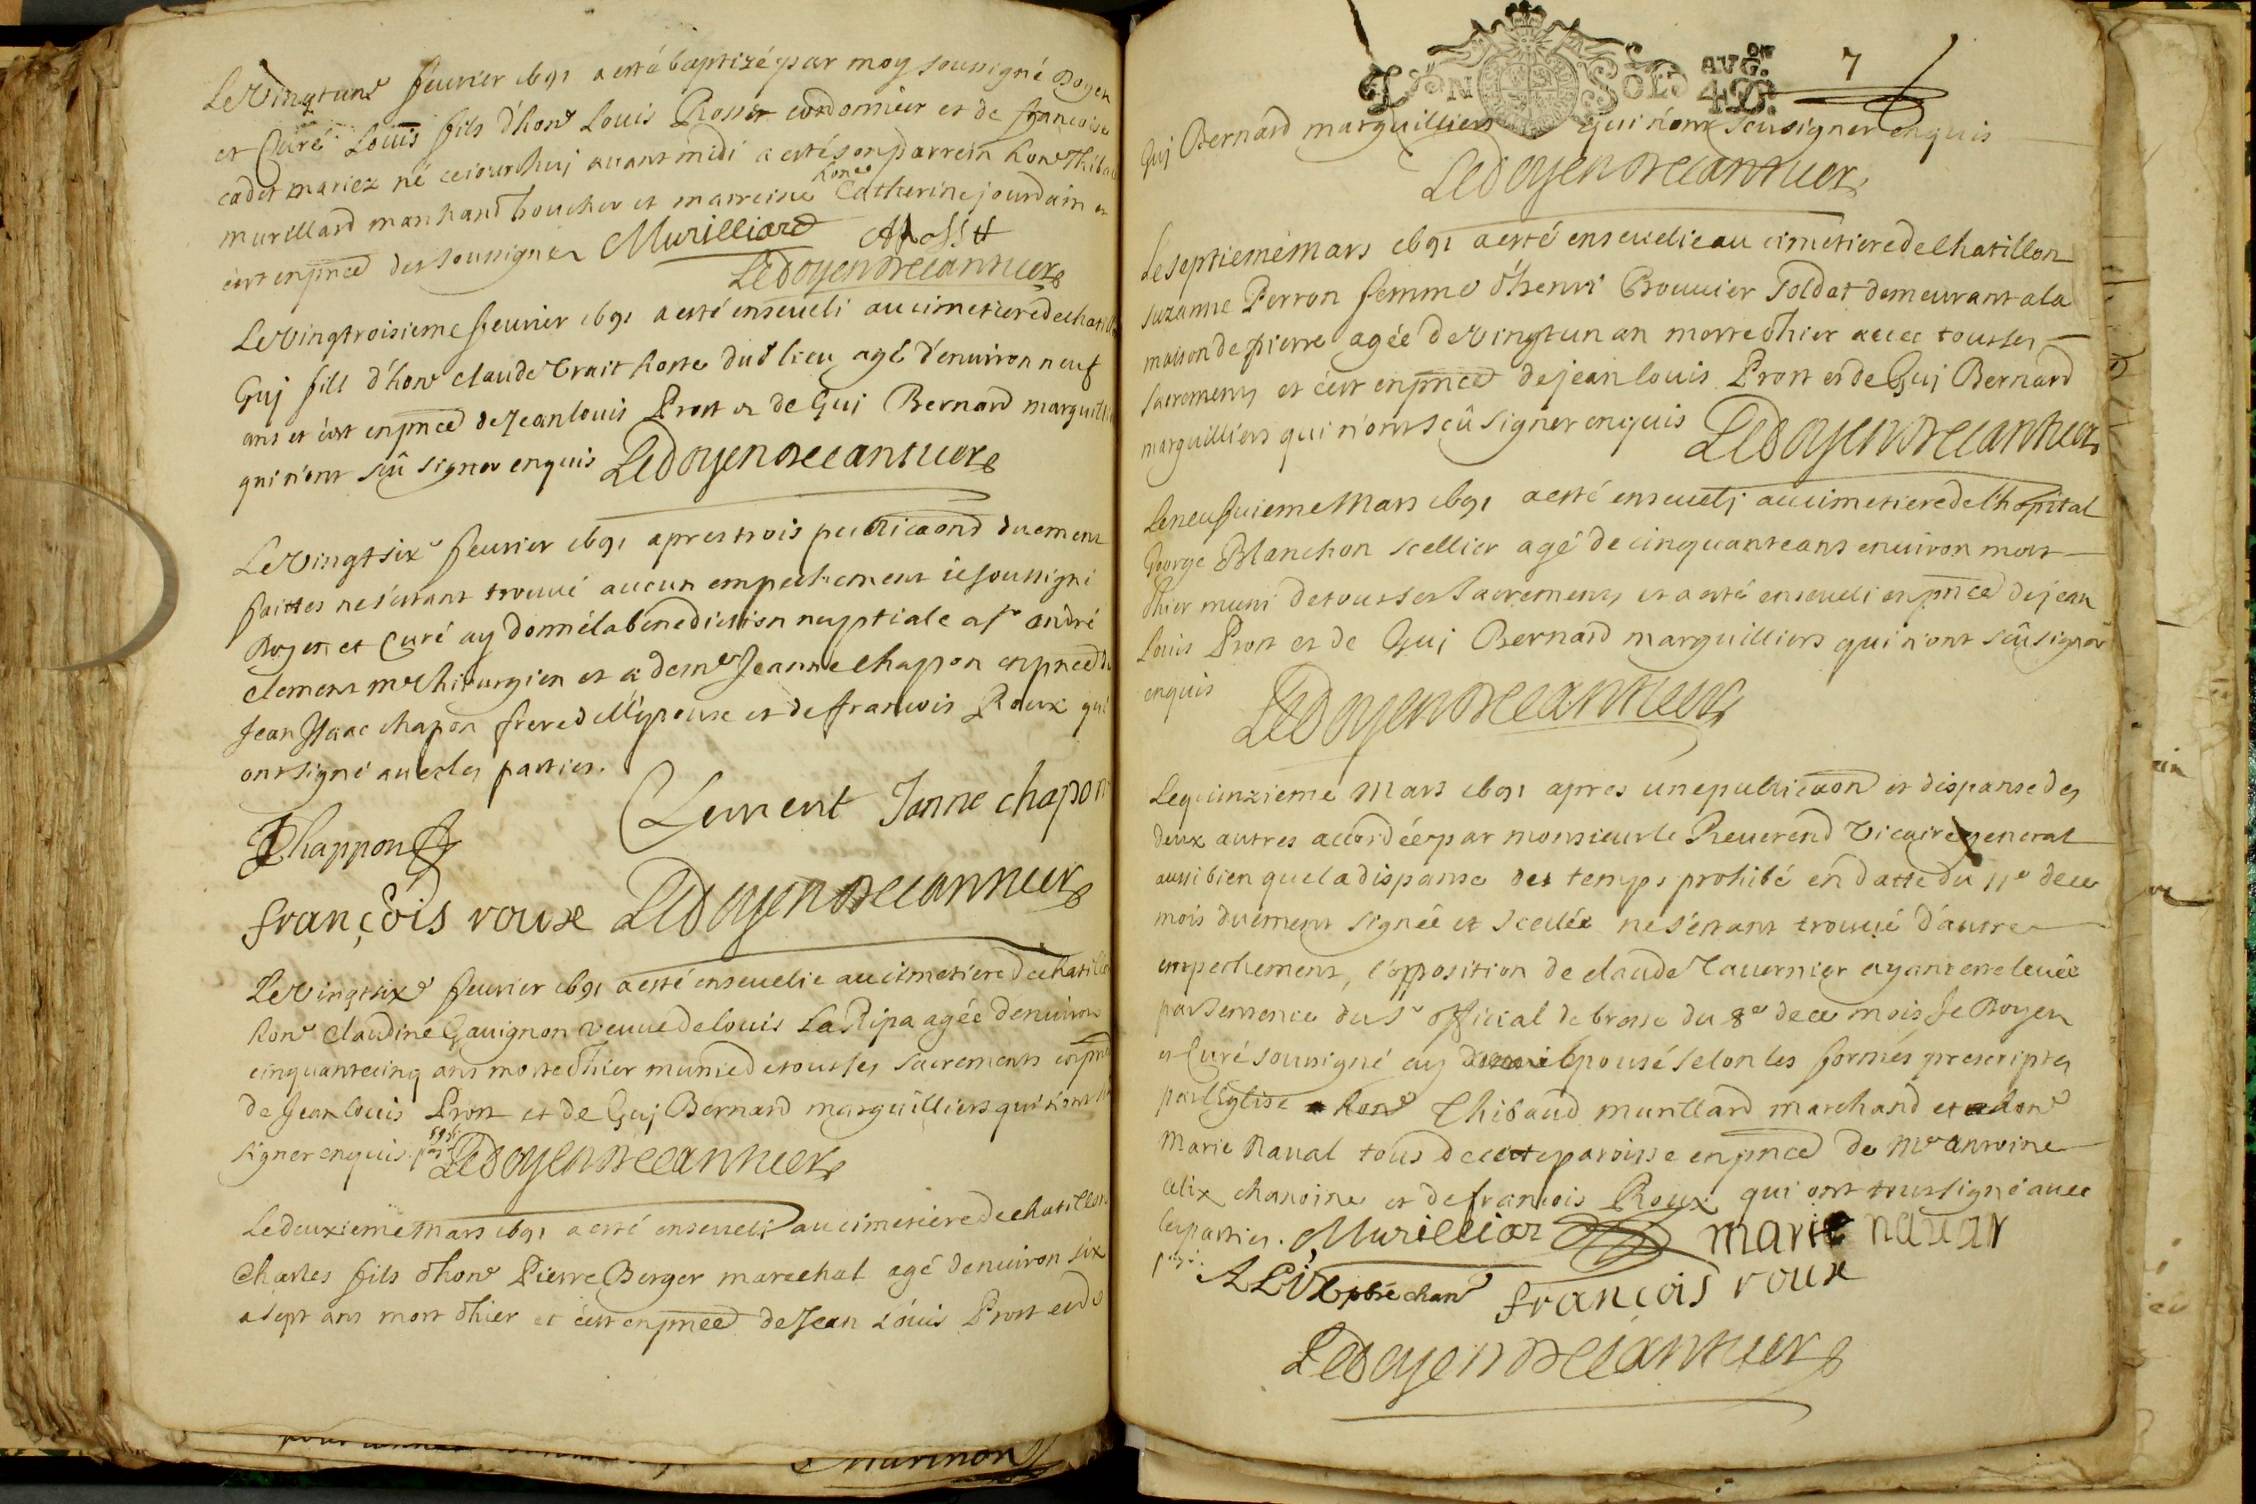 Le Vingtune feurier 1691 a esté baptizé par moy soussigné Doyen
et Curé Louis fils d'hone Louis Rosset cordonnier et de francoise
cadet mariez né ce jourdhuj auant midi a esté son parrein hone Thibau
murillard marchand boucher et marreine hone Catherine jourdain et
c'est enpnce des soussignez Murilliard
Ledoyen Decantuer
Le Vingtroisieme feurier 1691 a esté enseueli au cimetiere de chatillon
Guj fils d'hone claude Trait hoste dud lieu agé d'enuiron neuf
ans et c'est enpnce de Jean louis Prost et de Guj Bernard marguilli
qui n'ont sçû signer enquis Ledoyen Decantuer
Le Vingtsixe feurier 1691 apres trois publicaons duement
faittes ne s'étant trouué aucun empechement ie soussigné
Doyen et Curé ay donné la benediction nuptiale a sr andré
clement me chirurgien et a deme Jeanne chapon enpnce de
Jean Isaac chapon frere de l'épouse et de francois Roux qui
ont signé auec les parties.
Clement Janne chapon
Chappon
françois roux Ledoyen Decantuer
Le Vingtsixe feurier 1691 a esté enseuelie au cimetiere de chatillon
hone claudine Gauignon veuue de louis La Ripa agée denuiron
cinquantecinq ans morte d'hier munie de tous ses sacrements enpnce
de Jean louis Prost et de Guj Bernard marguilliers qui n'ont sçû
signer enquis. Ledoyen Decantuer
Le deuxieme Mars 1691 a esté enseueli au cimetiere de chatillon
Charles fils d'hone Pierre Berger marechal agé denuiron six
a sept ans mort d'hier et c'est enpnce de Jean Louis Prost et de
7
SOLS AUGon
4D.
Guj Bernard marguilliers qui n'ont sceu signer enquis
Ledoyen Decantuer
Le septieme Mars 1691 a esté enseuelie au cimetiere de chatillon
suzanne Perron femme d'henri Bouuier soldat demeurant a la
maison de pierre agée de Vingtun an morte d'hier auec tous ses
sacrements et c'est enpnce de jean louis Prost et de Guj Bernard
marguilliers qui n'ont sçû signer enquis Ledoyen Decantuer
Le neufuieme Mars 1691 a esté enseuelj au cimetiere de l'hopital
George Blanchon scellier agé de cinquante ans enuiron mort
d'hier muni de tous ses sacrements et a esté enseueli enpnce de jean
Louis Prost et de Guj Bernard marguilliers qui n'ont sçû signer
enquis Ledoyen Decantuer
Le quinzieme Mars 1691 apres une publicaon et dispanse des
deux autres accordée par monsieur le Reuerend Vicaire general
aussi bien que la dispanse des temps prohibé en datte du 11e de ce
mois duement signée et scellée ne s'étant trouué d'autre
empechement, l'opposition de claude Tauernier ayant este leuée
par sentence du sr official de bresse du 8e de ce mois Je Doyen
et Curé soussigné ay épousé selon les formes prescriptes
par l'Eglise hone Thibaud murillard marchand et hone
Marie Naual tous de cette paroisse enpnce de Mre antoine
alix chanoine et de francois Roux qui ont tous signé auec
les parties. Murilliar marie nauar
ALIX pbre chane françois roux
Ledoyen Decantuer